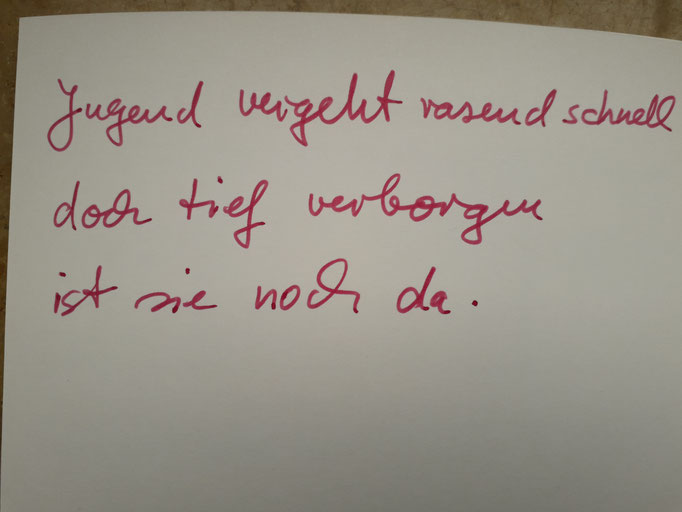 Jugend vergeht rasend schnell
doch tief verborgen
ist sie noch da.